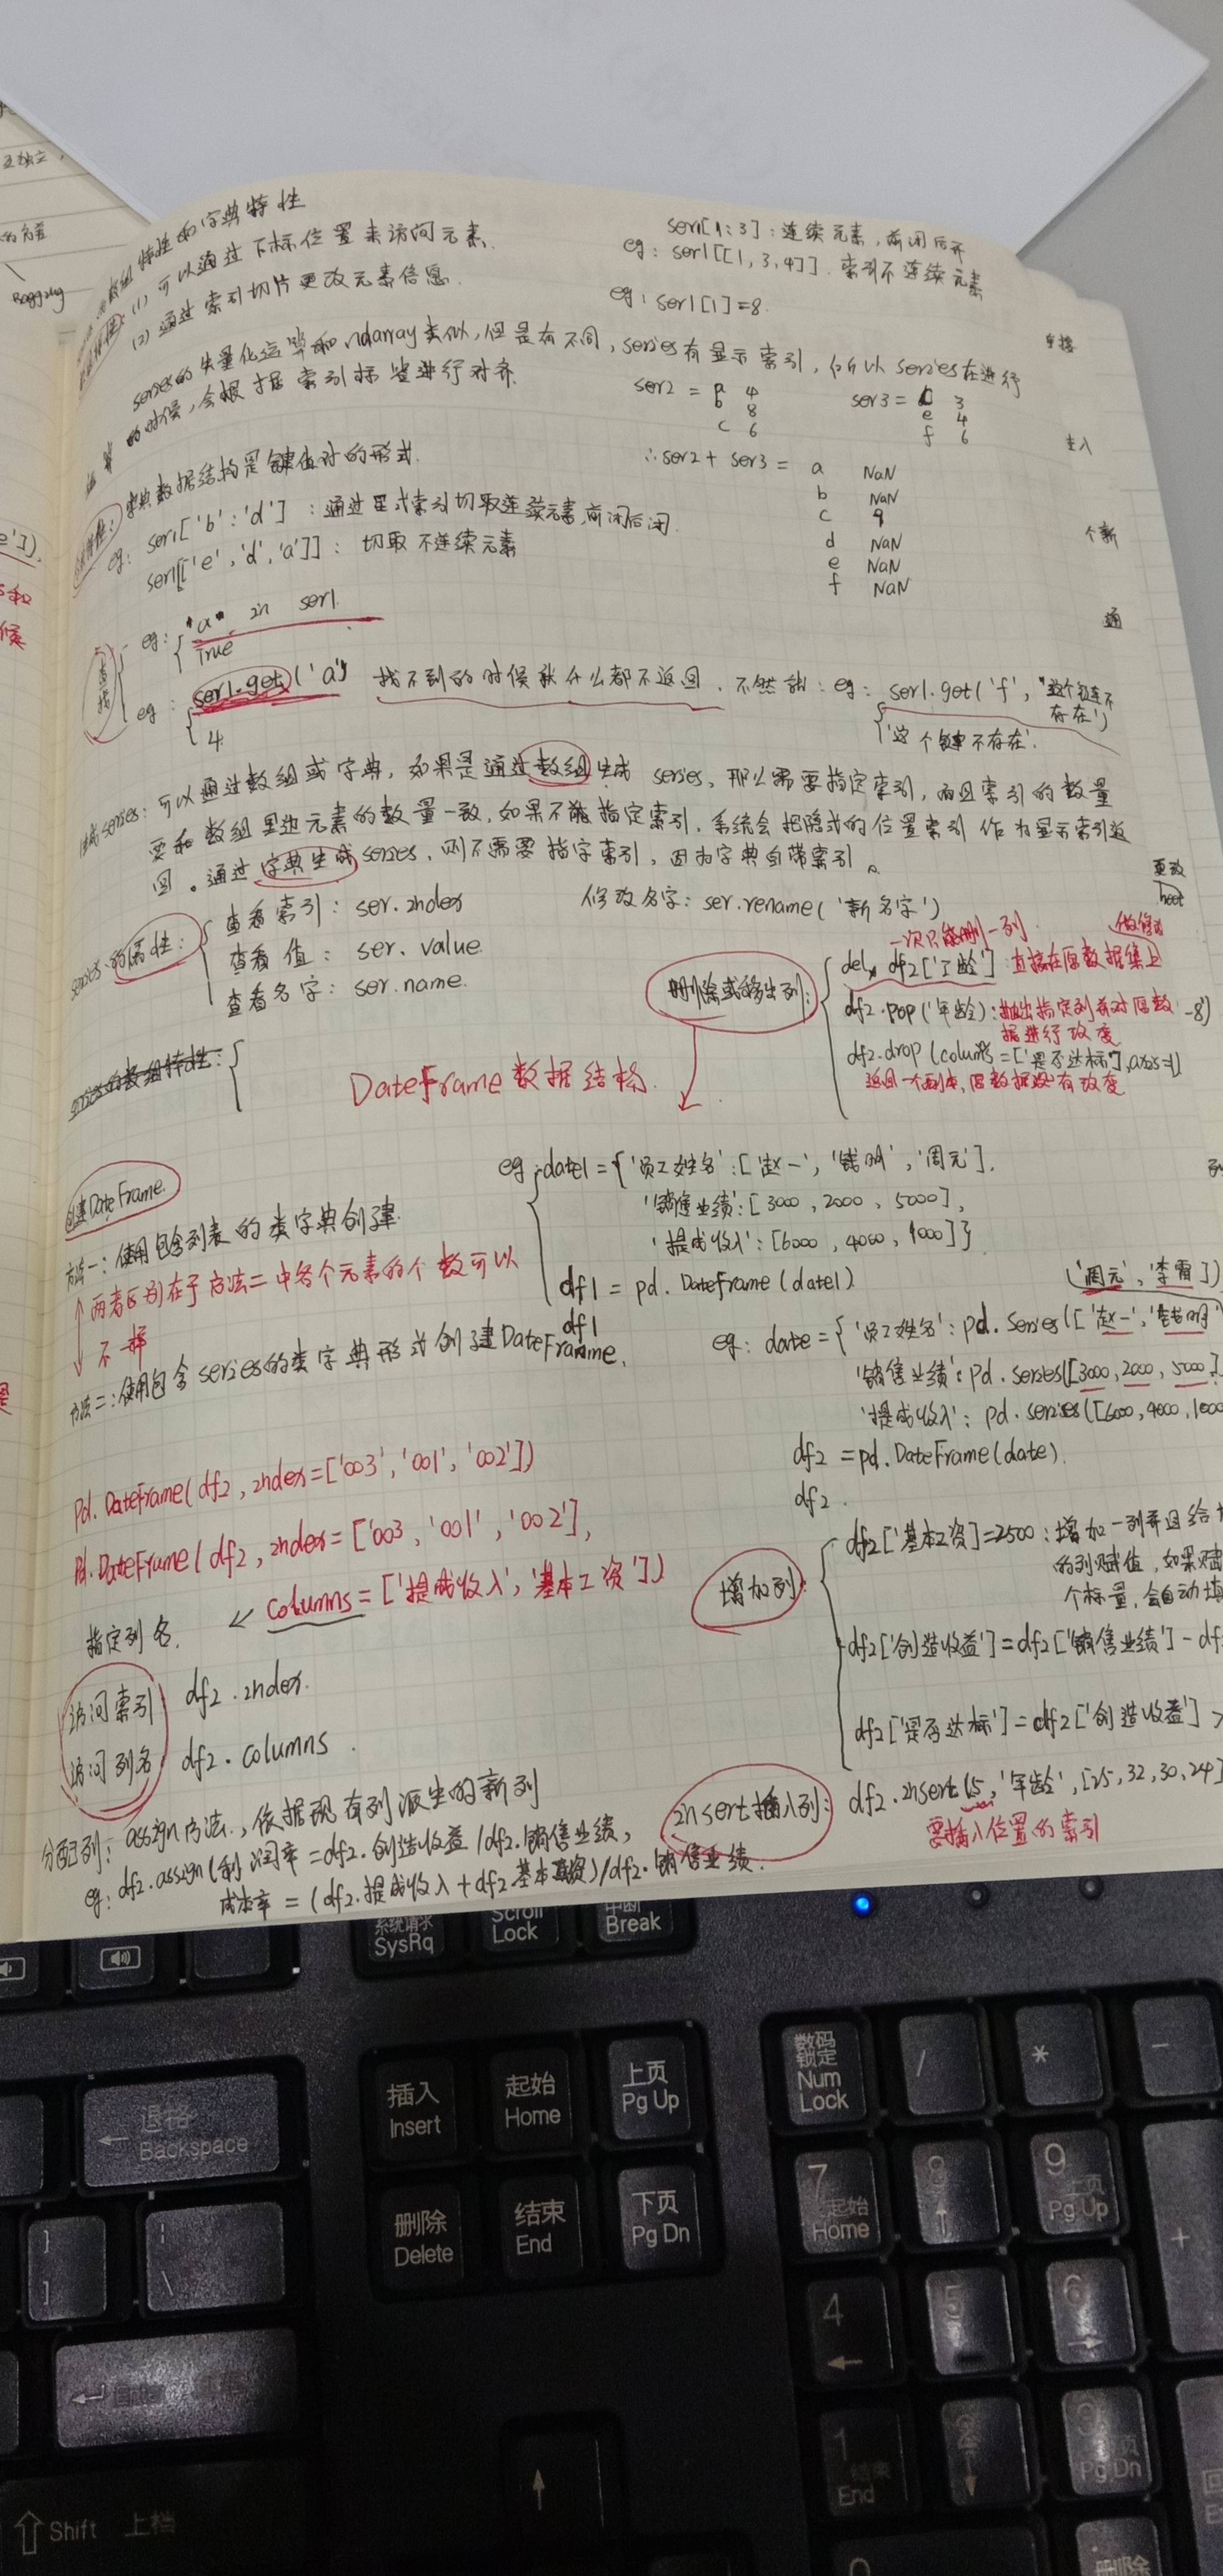 数组特性和字典特性
(1) 可以通过下标位置来访问元素.
ser1[1:3]:连续元素,前闭后开
eg: ser1[[1,3,4]]. 索引不连续元素
(2) 通过索引切片更改元素信息.
eg: ser1[1]=8
series的矢量化运算和ndarray类似,但是有不同,series有显示索引,所以series在进行
运算的时候,会根据索引标签进行对齐.
ser2 = a 4
b 8
c 6
ser3 = 3
e 4
f 6
∴ser2 + ser3 = a NaN
b NaN
c 9
d NaN
e NaN
f NaN
字典数据结构是键值对的形式.
eg: ser1['b':'d']:通过显式索引切取连续元素,前闭后闭.
ser1[['e','d','a']]: 切取不连续元素
查找
eg: "a" in ser1.
True
eg: ser1.get('a') 找不到的时候就什么都不返回.不然就:eg: ser1.get('f',"这个键不
存在')
4
'这个键不存在'.
生成series:可以通过数组或字典,如果是通过数组生成 series,那么需要指定索引,而且索引的数量
要和数组里边元素的数量一致,如果不能指定索引,系统会把隐式的位置索引作为显示索引返
回。通过字典生成series,则不需要指字索引,因为字典自带索引。
series的属性:
查看索引: ser.index
查看值: ser.value
查看名字: ser.name.
修改名字: ser.rename('新名字')
删除或移出列:
一次只能删一列.
del df2['工龄'] 直接在原数据集上
做修改
df2.pop('年龄):抽出指定列并对原数
据进行改变
df2.drop(columns=['是否达标'],axis=1)
返回一个副本,原数据没有改变
series的数组特性:
DateFrame数据结构.
创建DateFrame.
方法一:使用包含列表的类字典创建.
两者区别在于方法二中各个元素的个数可以
不一样
方法二:使用包含series的类字典形式创建DateFrame.
eg:date1={'员工姓名':['赵一','钱明','周元'],
'销售业绩':[3000,2000,5000],
'提成收入':[6000,4000,1000]}
df1 = pd.DateFrame(date1)
df1
'周元','李雷'])
eg: date={'员工姓名':pd.Series(['赵一','钱明'
'销售业绩':pd.series([3000,2000,5000]
'提成收入':pd.series([6000,4000,1000
df2 = pd.DateFrame(date).
df2.
pd.DateFrame(df2,index=['003','001','002'])
pd.DateFrame(df2,index=['003,'001','002'],
columns=['提成收入','基本工资'])
指定列名.
访问索引: df2.index.
访问列名: df2.columns.
增加列:
df2['基本工资]=2500:增加一列并且给
的列赋值,如果赋
个标量,会自动填
df2['创造收益']=df2['销售业绩']-df
df2['是否达标']=df2['创造收益']>
insert插入列: df2.insert(5,'年龄',[25,32,30,24]
要插入位置的索引
分配列: assign方法.,依据现有列派生的新列
eg: df2.assign(利润率=df2.创造收益/df2.销售业绩,
成本率=(df2.提成收入+df2.基本工资)/df2.销售业绩.
Bagging
个新
更改
系统请求
SysRq
Scroll
Lock
中断
Break
退格
← Backspace
插入
Insert
起始
Home
上页
Pg Up
数码
锁定
Num
Lock
/
*
-
删除
Delete
结束
End
下页
Pg Dn
7
起始
Home
8
↑
9
上页
Pg Up
+
}
]
|
\
4
←
5
6
→
Enter
1
结束
End
2
↓
3
下页
Pg Dn
⇧ Shift 上档
↑
0
.
删除